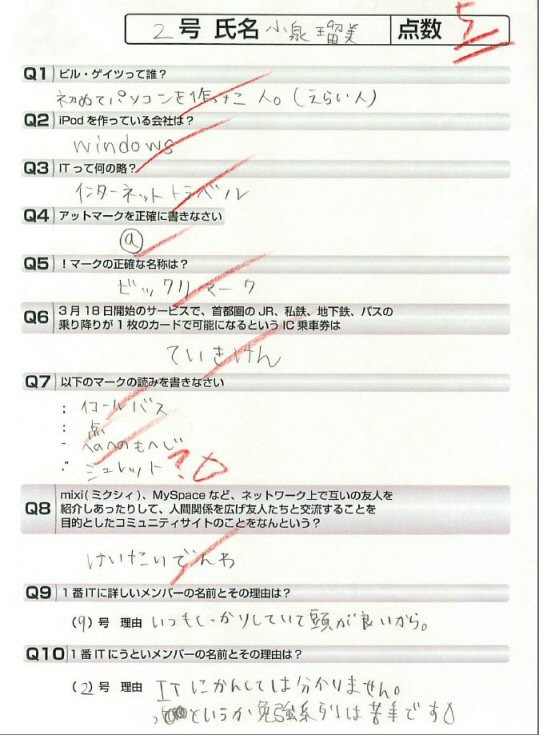 2 号 氏名 小泉 瑠美 点数 5
Q1 ビル・ゲイツって誰?
初めてパソコンを作った人。(えらい人)
Q2 iPod を作っている会社は?
windows
Q3 ITって何の略?
インターネットトラベル
Q4 アットマークを正確に書きなさい
ⓐ
Q5 !マークの正確な名称は?
ビックリマーク
Q6 3月18日開始のサービスで、首都圏のJR、私鉄、地下鉄、バスの
乗り降りが1枚のカードで可能になるというIC乗車券は
ていきけん
Q7 以下のマークの読みを書きなさい
: イコールバス
: 点
へのへのもへじ
シュレット
Q8 mixi(ミクシィ)、MySpaceなど、ネットワーク上で互いの友人を
紹介しあったりして、人間関係を広げ友人たちと交流することを
目的としたコミュニティサイトのことをなんという?
けいたいでんわ
Q9 1番ITに詳しいメンバーの名前とその理由は?
(9)号 理由 いつもしっかりしていて頭が良いから。
Q10 1番ITにうといメンバーの名前とその理由は?
(2)号 理由 ITにかんしては分かりません。
というか勉強系列は苦手です